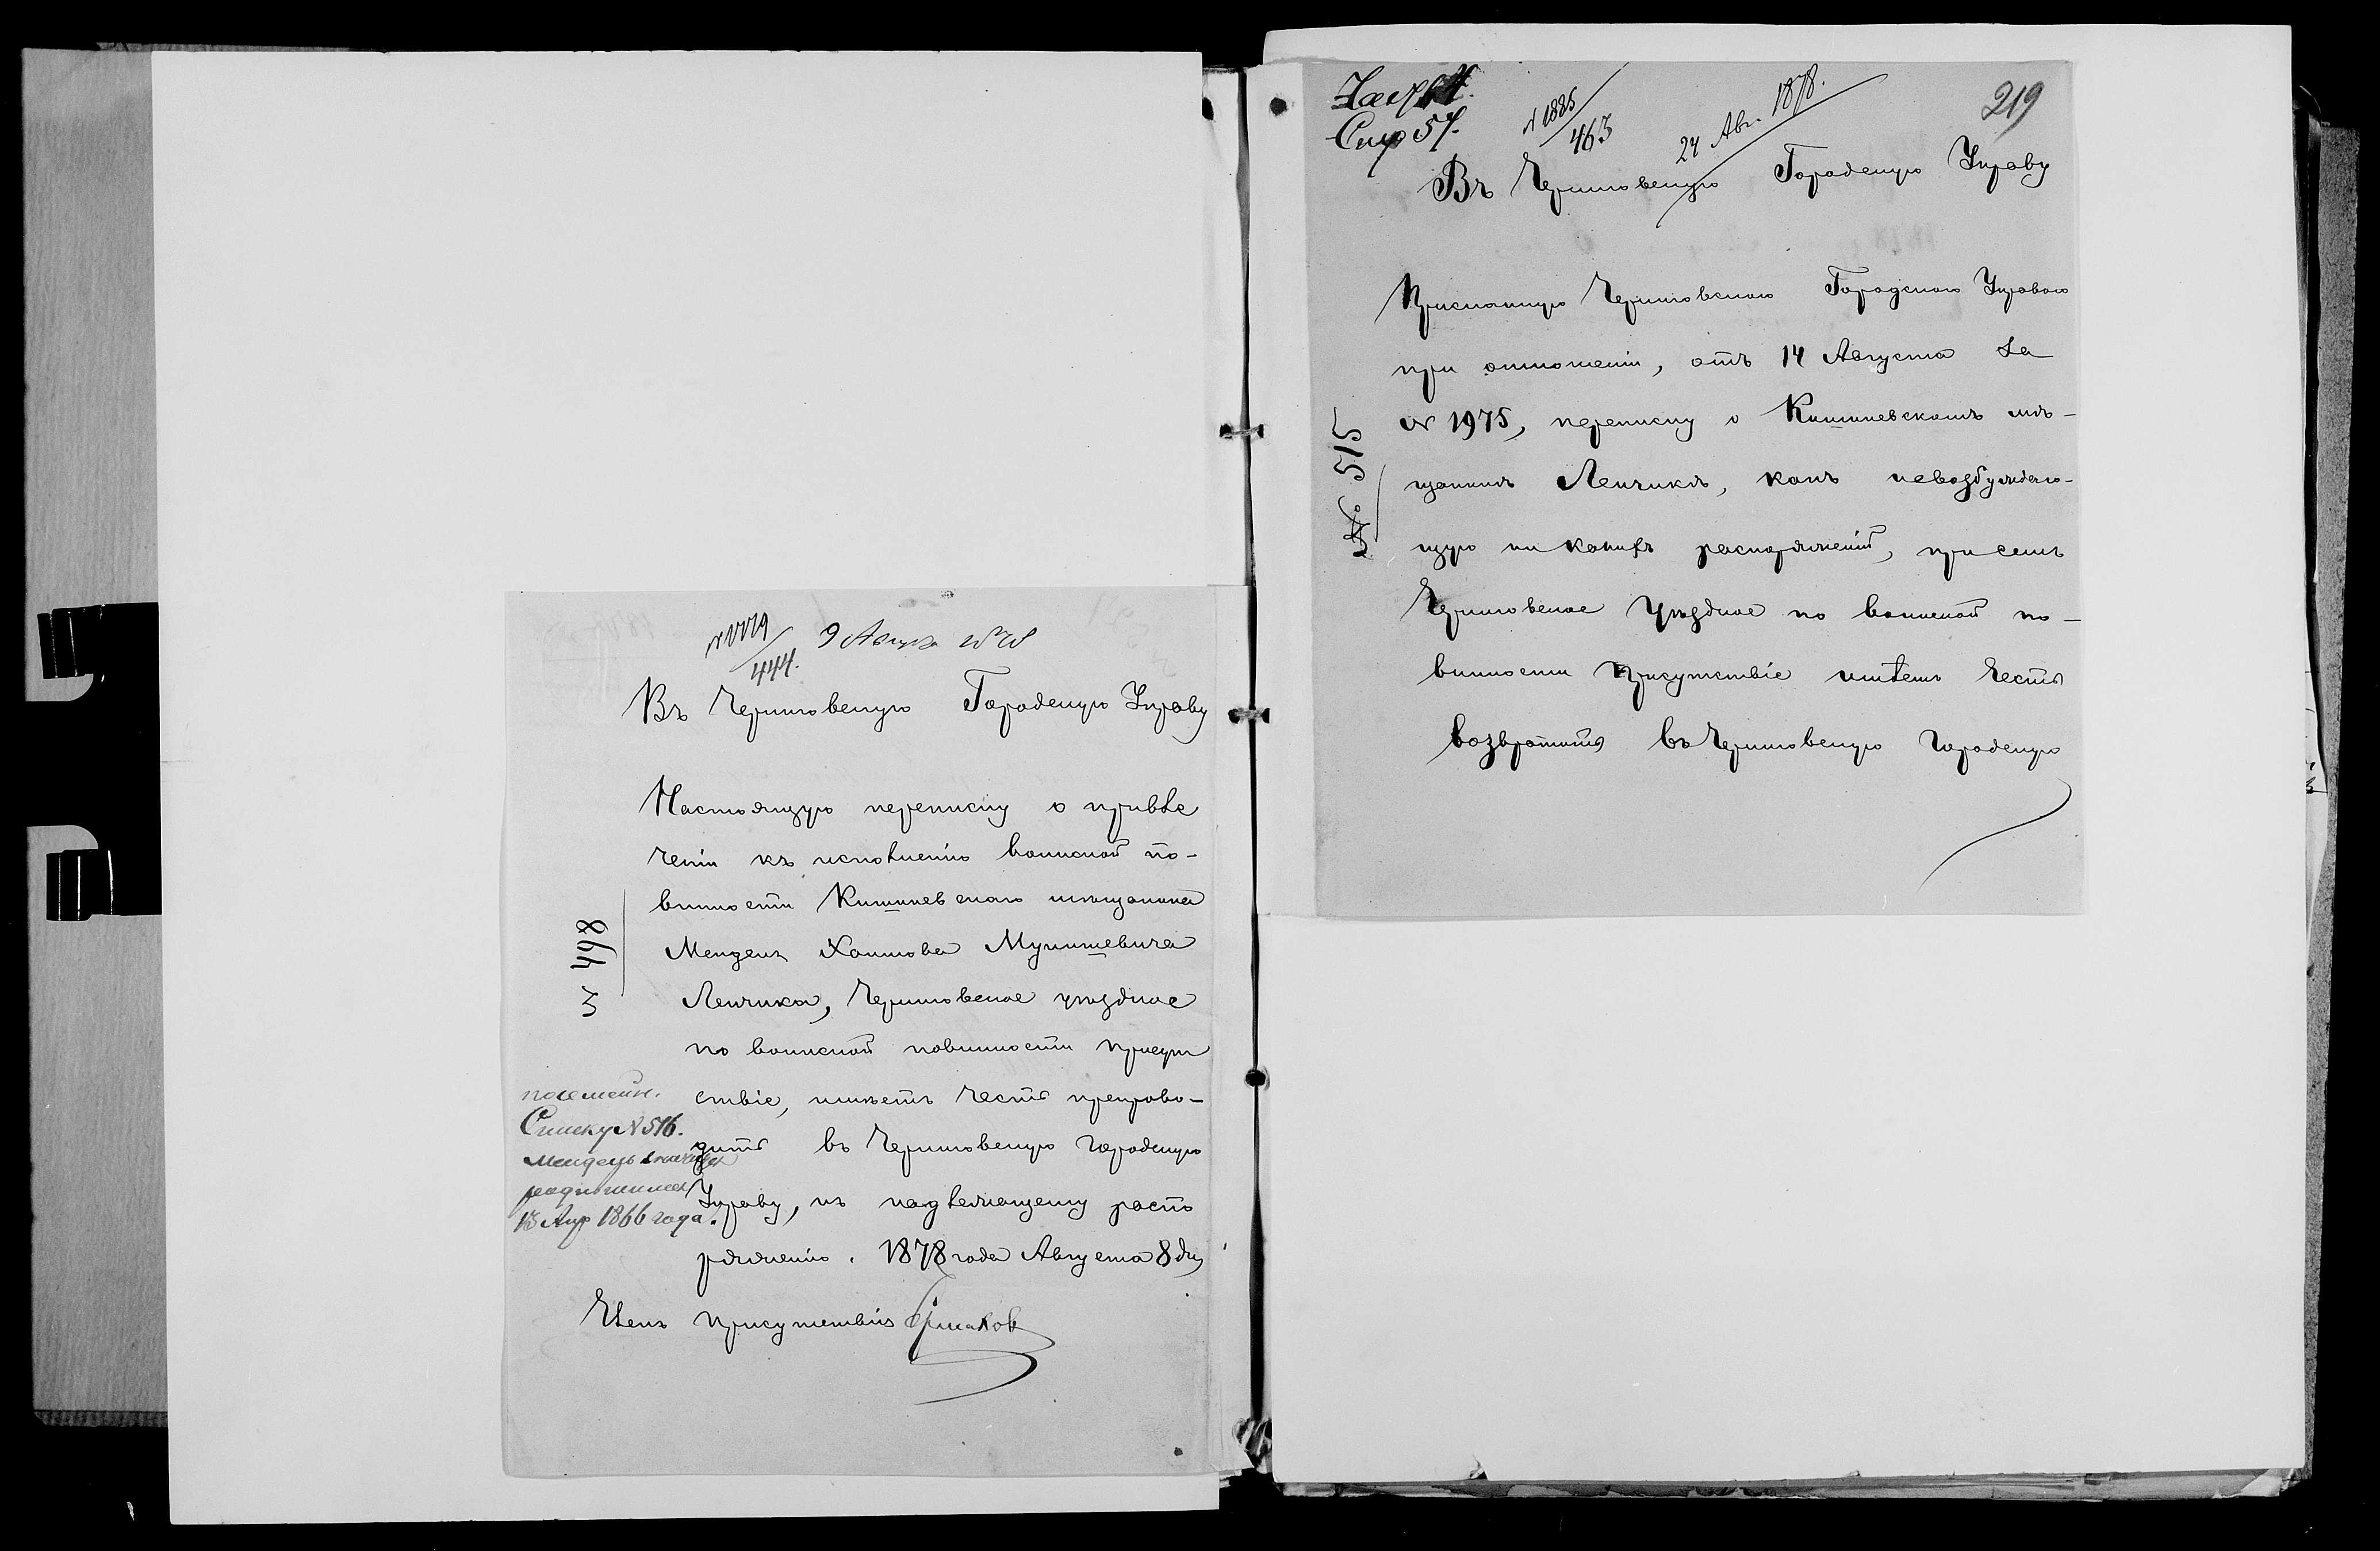 9 Августа 1878
444.
Въ Черниговскую Городскую Управу
Настоящую переписку о привле
ченіи къ исполненію воинской по-
винности Кишиневскаго мѣщанина
Мендель Хаимова Мунишевича
Ленчика, Черниговское уѣздное
по воинской повинности присут
ствіе, имѣетъ честь препрово-
дить въ Черниговскую городскую
Управу, къ надлежащему распо
ряженію. 1878 года Августа 8 дня
Членъ присутствія Ермаков
№ 498
посемейн.
Списку № 516.
Мендель
родившимся
13 Апр 1866 года.
219
Стр 57.
№ 1885
463
24 Авг. 1878.
Въ Черниговскую Городскую Управу
Присланную Черниговскою Городскою Управою
при отношеніи, отъ 14 Августа за
№ 1975, переписку о Кишиневскомъ мѣ-
щанинѣ Ленчикѣ, какъ невозбуждаю-
щую никакихъ распоряженій, при семъ
Черниговское Уѣздное по воинской по-
винности Присутствіе имѣетъ честь
возвратить въ Черниговскую Городскую
№ 515